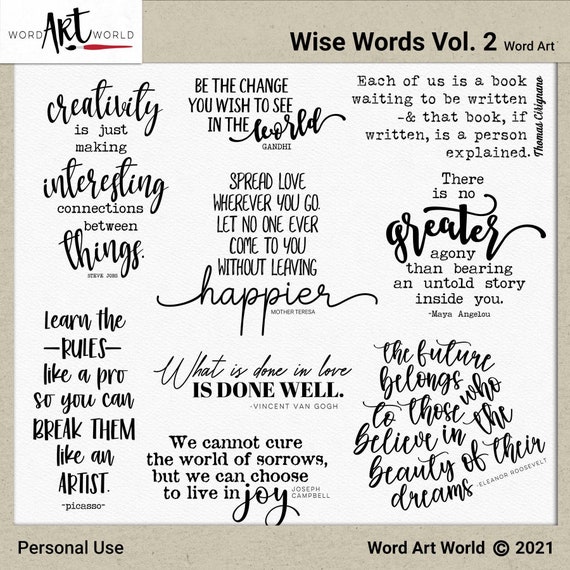 WORD ART WORLD
Wise Words Vol. 2 Word Art
creativity
is just
making
interesting
connections
between
things.
STEVE JOBS
BE THE CHANGE
YOU WISH TO SEE
IN THE world
GANDHI
Each of us is a book
waiting to be written
-& that book, if
written, is a person
explained.
Thomas Cirignano
SPREAD LOVE
WHEREVER YOU GO.
LET NO ONE EVER
COME TO YOU
WITHOUT LEAVING
happier
MOTHER TERESA
There
is no
greater
agony
than bearing
an untold story
inside you.
-Maya Angelou
Learn the
—RULES—
like a pro
so you can
BREAK THEM
like an
ARTIST.
-picasso-
What is done in love
IS DONE WELL.
-VINCENT VAN GOGH
the future
belongs
to those who
believe in the
beauty of their
dreams
-ELEANOR ROOSEVELT
We cannot cure
the world of sorrows,
but we can choose
to live in joy
JOSEPH
CAMPBELL
Personal Use
Word Art World © 2021